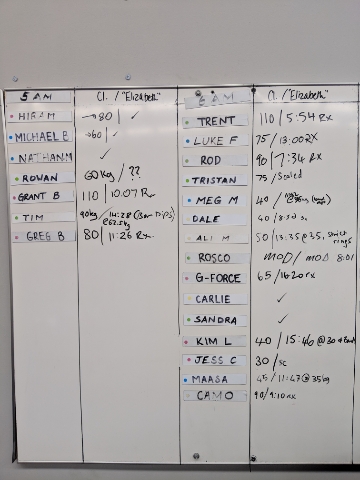 5 AM Cl. / "Elizabeth"
HIRAM → 80 / ✓
MICHAEL B → 60 / ✓
NATHAN M ✓
ROWAN 60 kg / ??
GRANT B 110 / 10:07 Rx
TIM 90kg / 14:28 (Bar Dips) @62.5kg
GREG B 80 / 11:26 Rx
6 AM Cl. / "Elizabeth"
TRENT 110 / 5:54 Rx
LUKE F 75 / 13:00 RX
ROD 90 / 7:34 Rx
TRISTAN 75 / Scaled
MEG M 40 /
DALE 40 /
ALI M 50 / 13:35 @ 35, strict rings
ROSCO MOD / MOD 8:01
G-FORCE 65 / 16:20 rx
CARLIE ✓
SANDRA ✓
KIM L 40 / 15:46 @ 30
JESS C 30 / sc
MAASA 45 / 11:47 @ 35kg
CAMO 90 / 9:10 rx